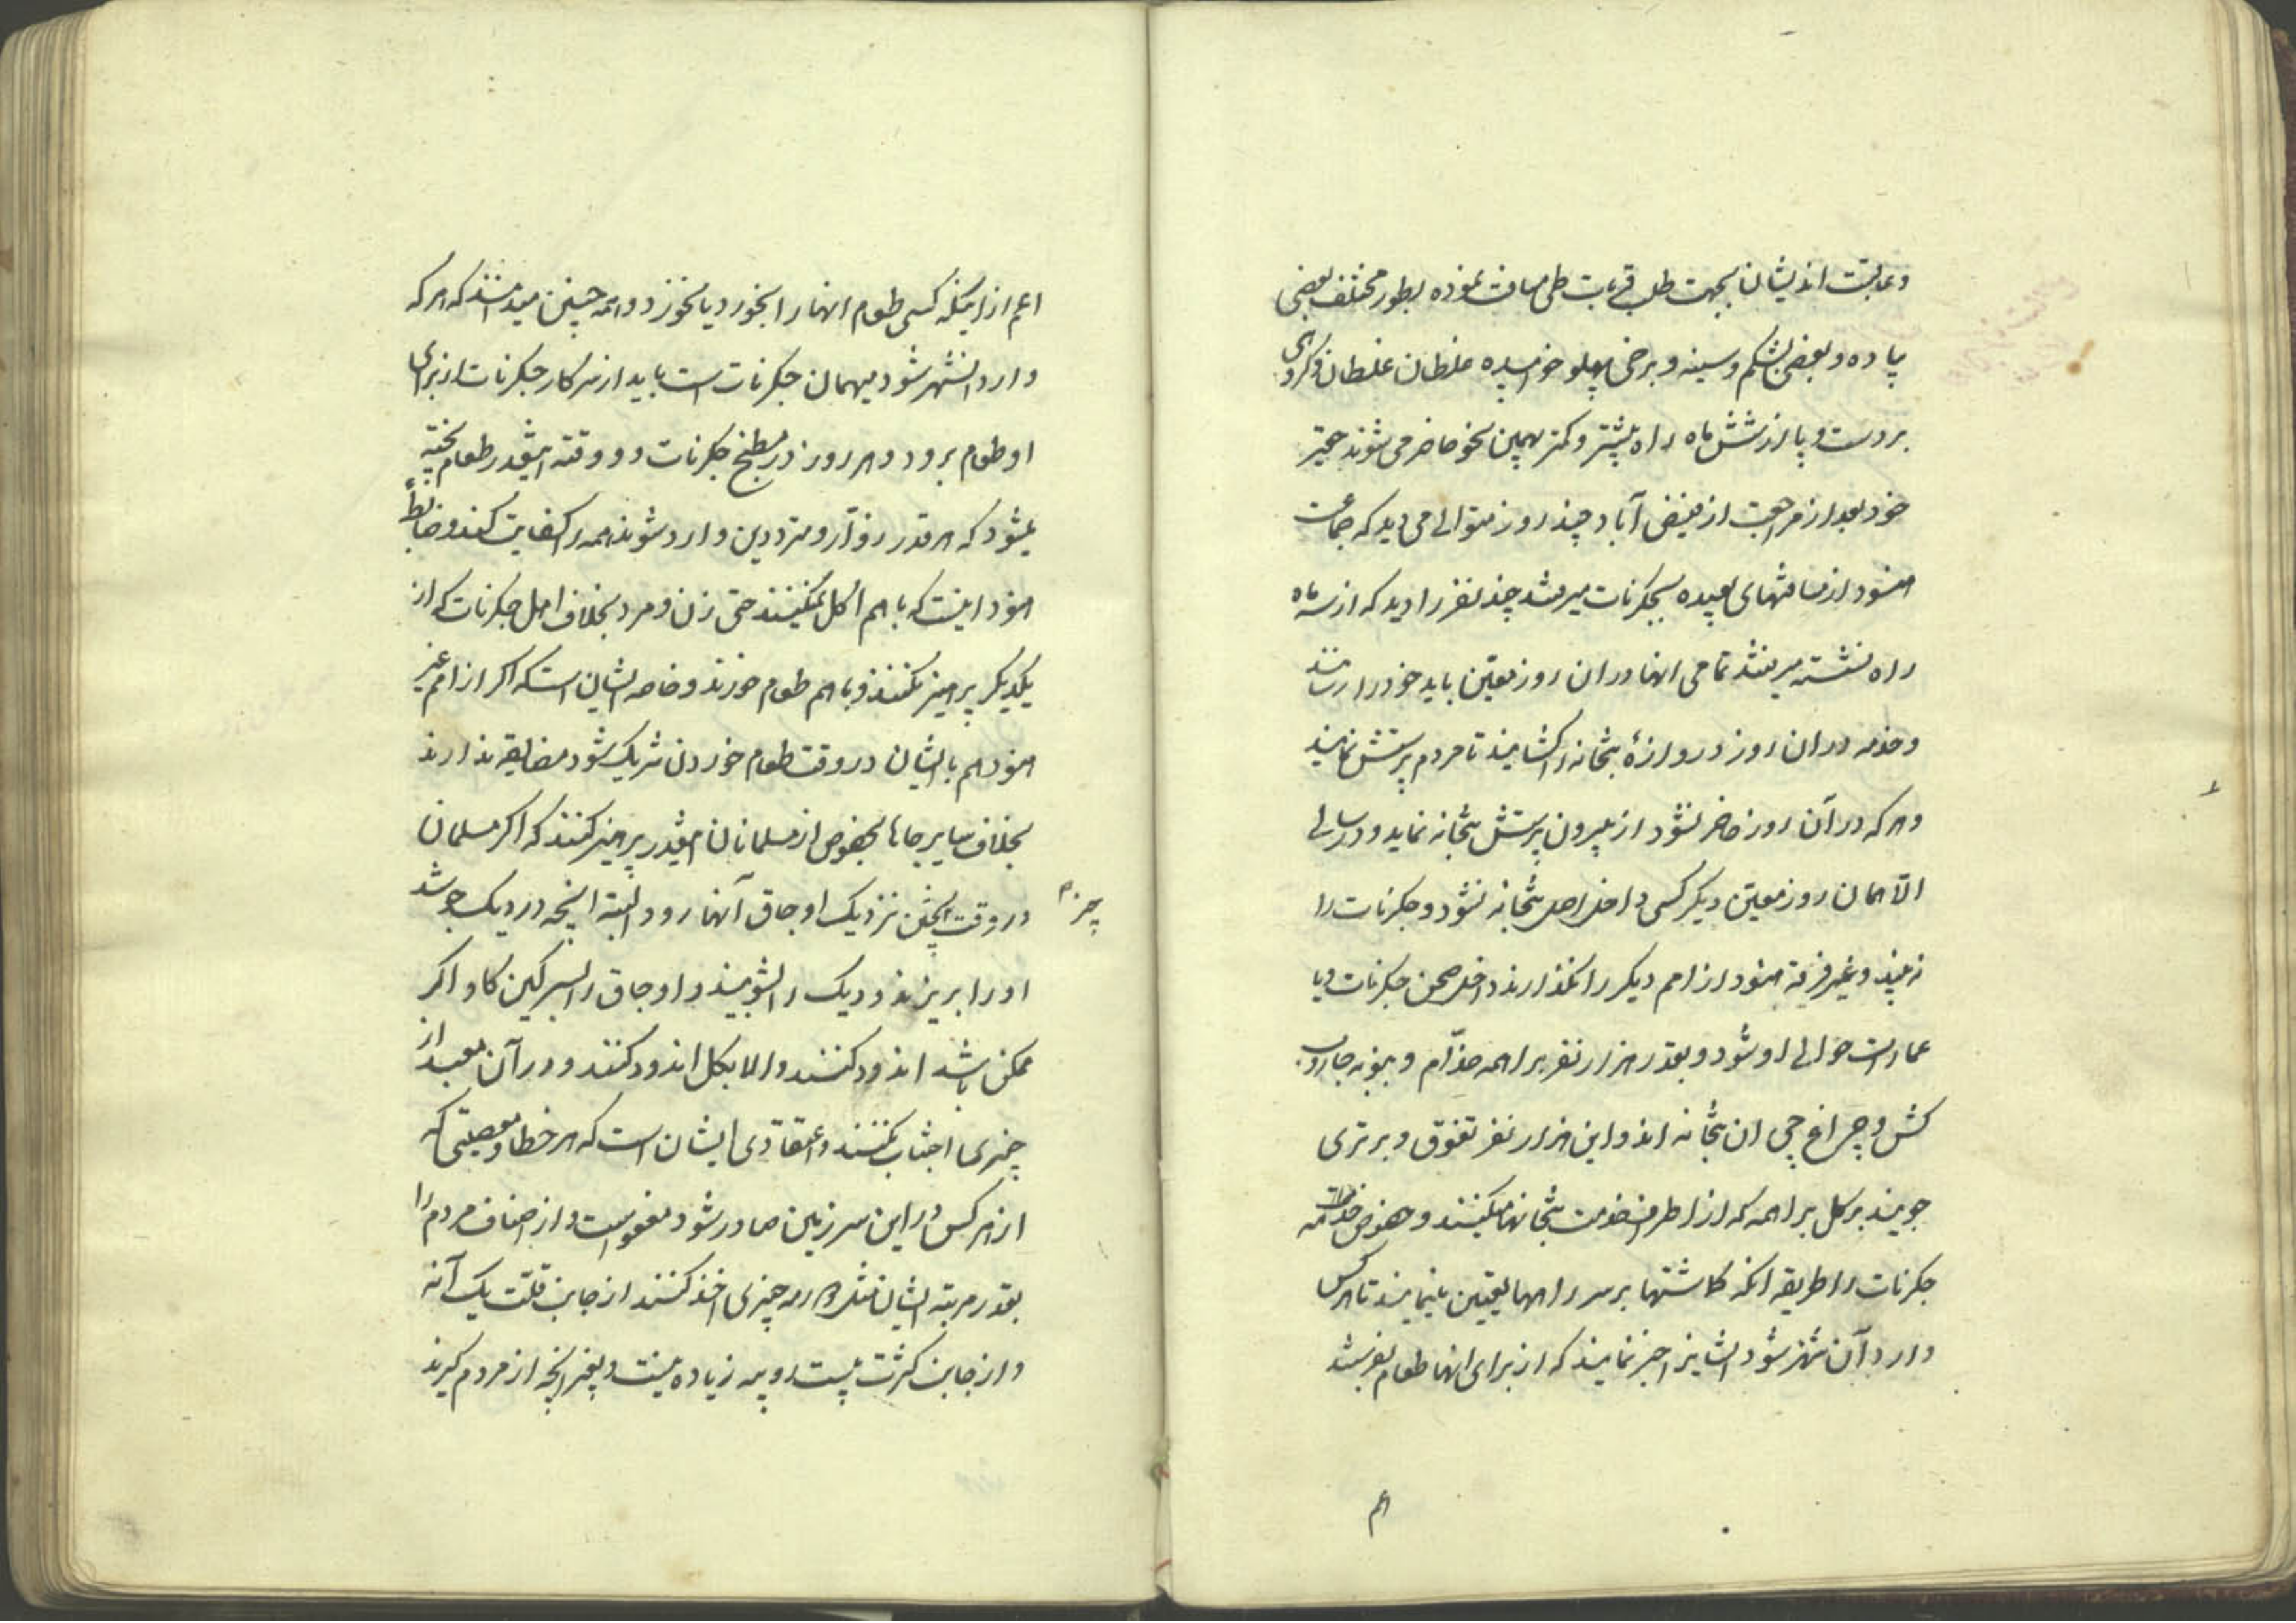 و عاقبت اندیشان بجهت طلب قربات طی مسافت نموده بطور مختلف بعضی
پیاده و بعضی بشکم و سینه و برخی پهلو خوابیده غلطان غلطان و گروهی
بر دست و پا از شش ماه راه بیشتر و کمتر بهمین نحو حاضر می شوند حقیر
خود بعد از مراجعت از فیض آباد چند روز متوالی می دید که جماعت
هنود از مسافتهای بعیده بجکرنات میرفتند چند نفر را دید که از سه ماه
راه نشسته میرفتند تمامی انها در ان روز معیّن باید خود را رسانند
و خدمه در ان روز دروازهٔ بتخانه را کشایند تا مردم پرستش نمایند
و هر که در آن روز حاضر نشود از بیرون پرستش بتخانه نماید و در سالی
الّا همان روز معیّن دیکر کسی داخل اصل بتخانه نشود و جکرنات را
نه بیند و غیر فرقه هنود از امم دیکر را نگذارند داخل صحن جکرنات و یا
عمارات حوالی او شود و بقدر هزار نفر براهمه خدّام و بمنزله جاروب
کش و چراغ چی ان بتخانه اند و این هزار نفر تفوق و برتری
جویند بر کل براهمه که از اطراف خدمت بتخانها میکنند و هنود خدمه
جکرنات را طریقه انکه کماشتها بر سر راهها تعیین مینمایند تا هر کس
وارد آن شهر شود ایشانرا خبر نمایند که از برای انها طعام بفرستند
اعم
اعم از اینکه کسی طعام انها را بخورد یا نخورد و همه چنین میدانند که هر که
وارد انشهر شود میهمان جکرنات است باید از سرکار جکرنات از برای
او طعام برود و هر روز در مطبخ جکرنات دو وقته اینقدر طعام پخته
میشود که هر قدر زوّار و مترددین وارد شوند همه را کفایت کند و ضابطهٔ
هنود اینست که با هم اکل نمیکنند حتی زن و مرد بخلاف اهل جکرنات که از
یکدیکر پرهیز نکنند و با هم طعام خورند و خاصه ایشان است که اکر از امم غیر
هنود هم با ایشان در وقت طعام خوردن شریک شود مضایقه ندارند
بخلاف سایر جاها بخصوص از مسلمانان اینقدر پرهیز کنند که اکر مسلمان
در وقت پختن نزدیک اوجاق آنها رود البته انچه در دیک جوشد
چیز
او را بریزند و دیک را بشویند و اوجاق را بسرکین کاو اکر
ممکن باشد اندود کنند و الا بکل اندود کنند و در آن معبد از
چیزی اجتناب نکنند و اعتقادی ایشان است که هر خطا و معصیتی که
از هر کس در این سرزمین صادر شود معفو است و از اصناف مردم را
بقدر مرتبه ایشان چیزی اخذ کنند از جانب قلّت یک آنه
و از جانب کثرت بیست روپیه زیاده نیست و بغیر انچه از مردم کیرند